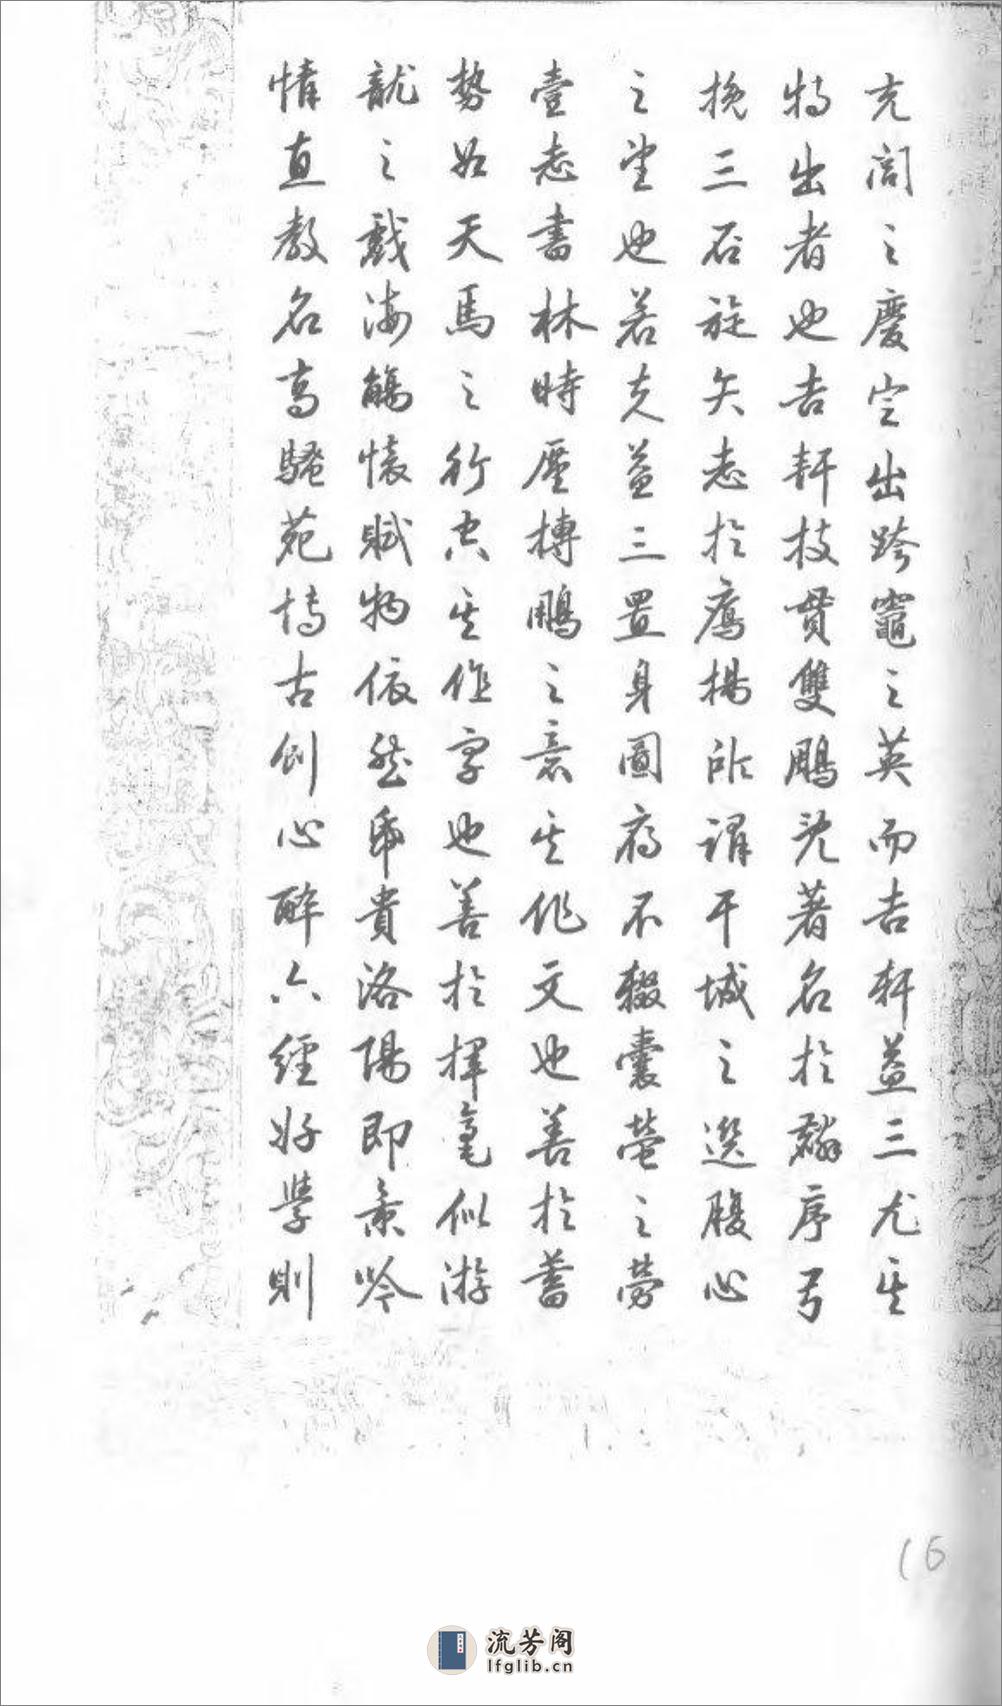 充閭之慶定出跨竈之英而吉軒益三尤其
特出者也吉軒技貫雙鵰既著名於黌序弓
挽三石旋矢志於鷹揚所謂干城之選腹心
之望也若夫益三置身圖府不輟囊螢之勞
壹志書林時歷摶鵬之意其作文也善於蓄
勢如天馬之行空其作字也善於揮毫似游
龍之戲海觴懷賦物依然希貴洛陽即景吟
情直教名高騷苑博古劍心醉六經好學則
16
流芳阁
lfglib.cn